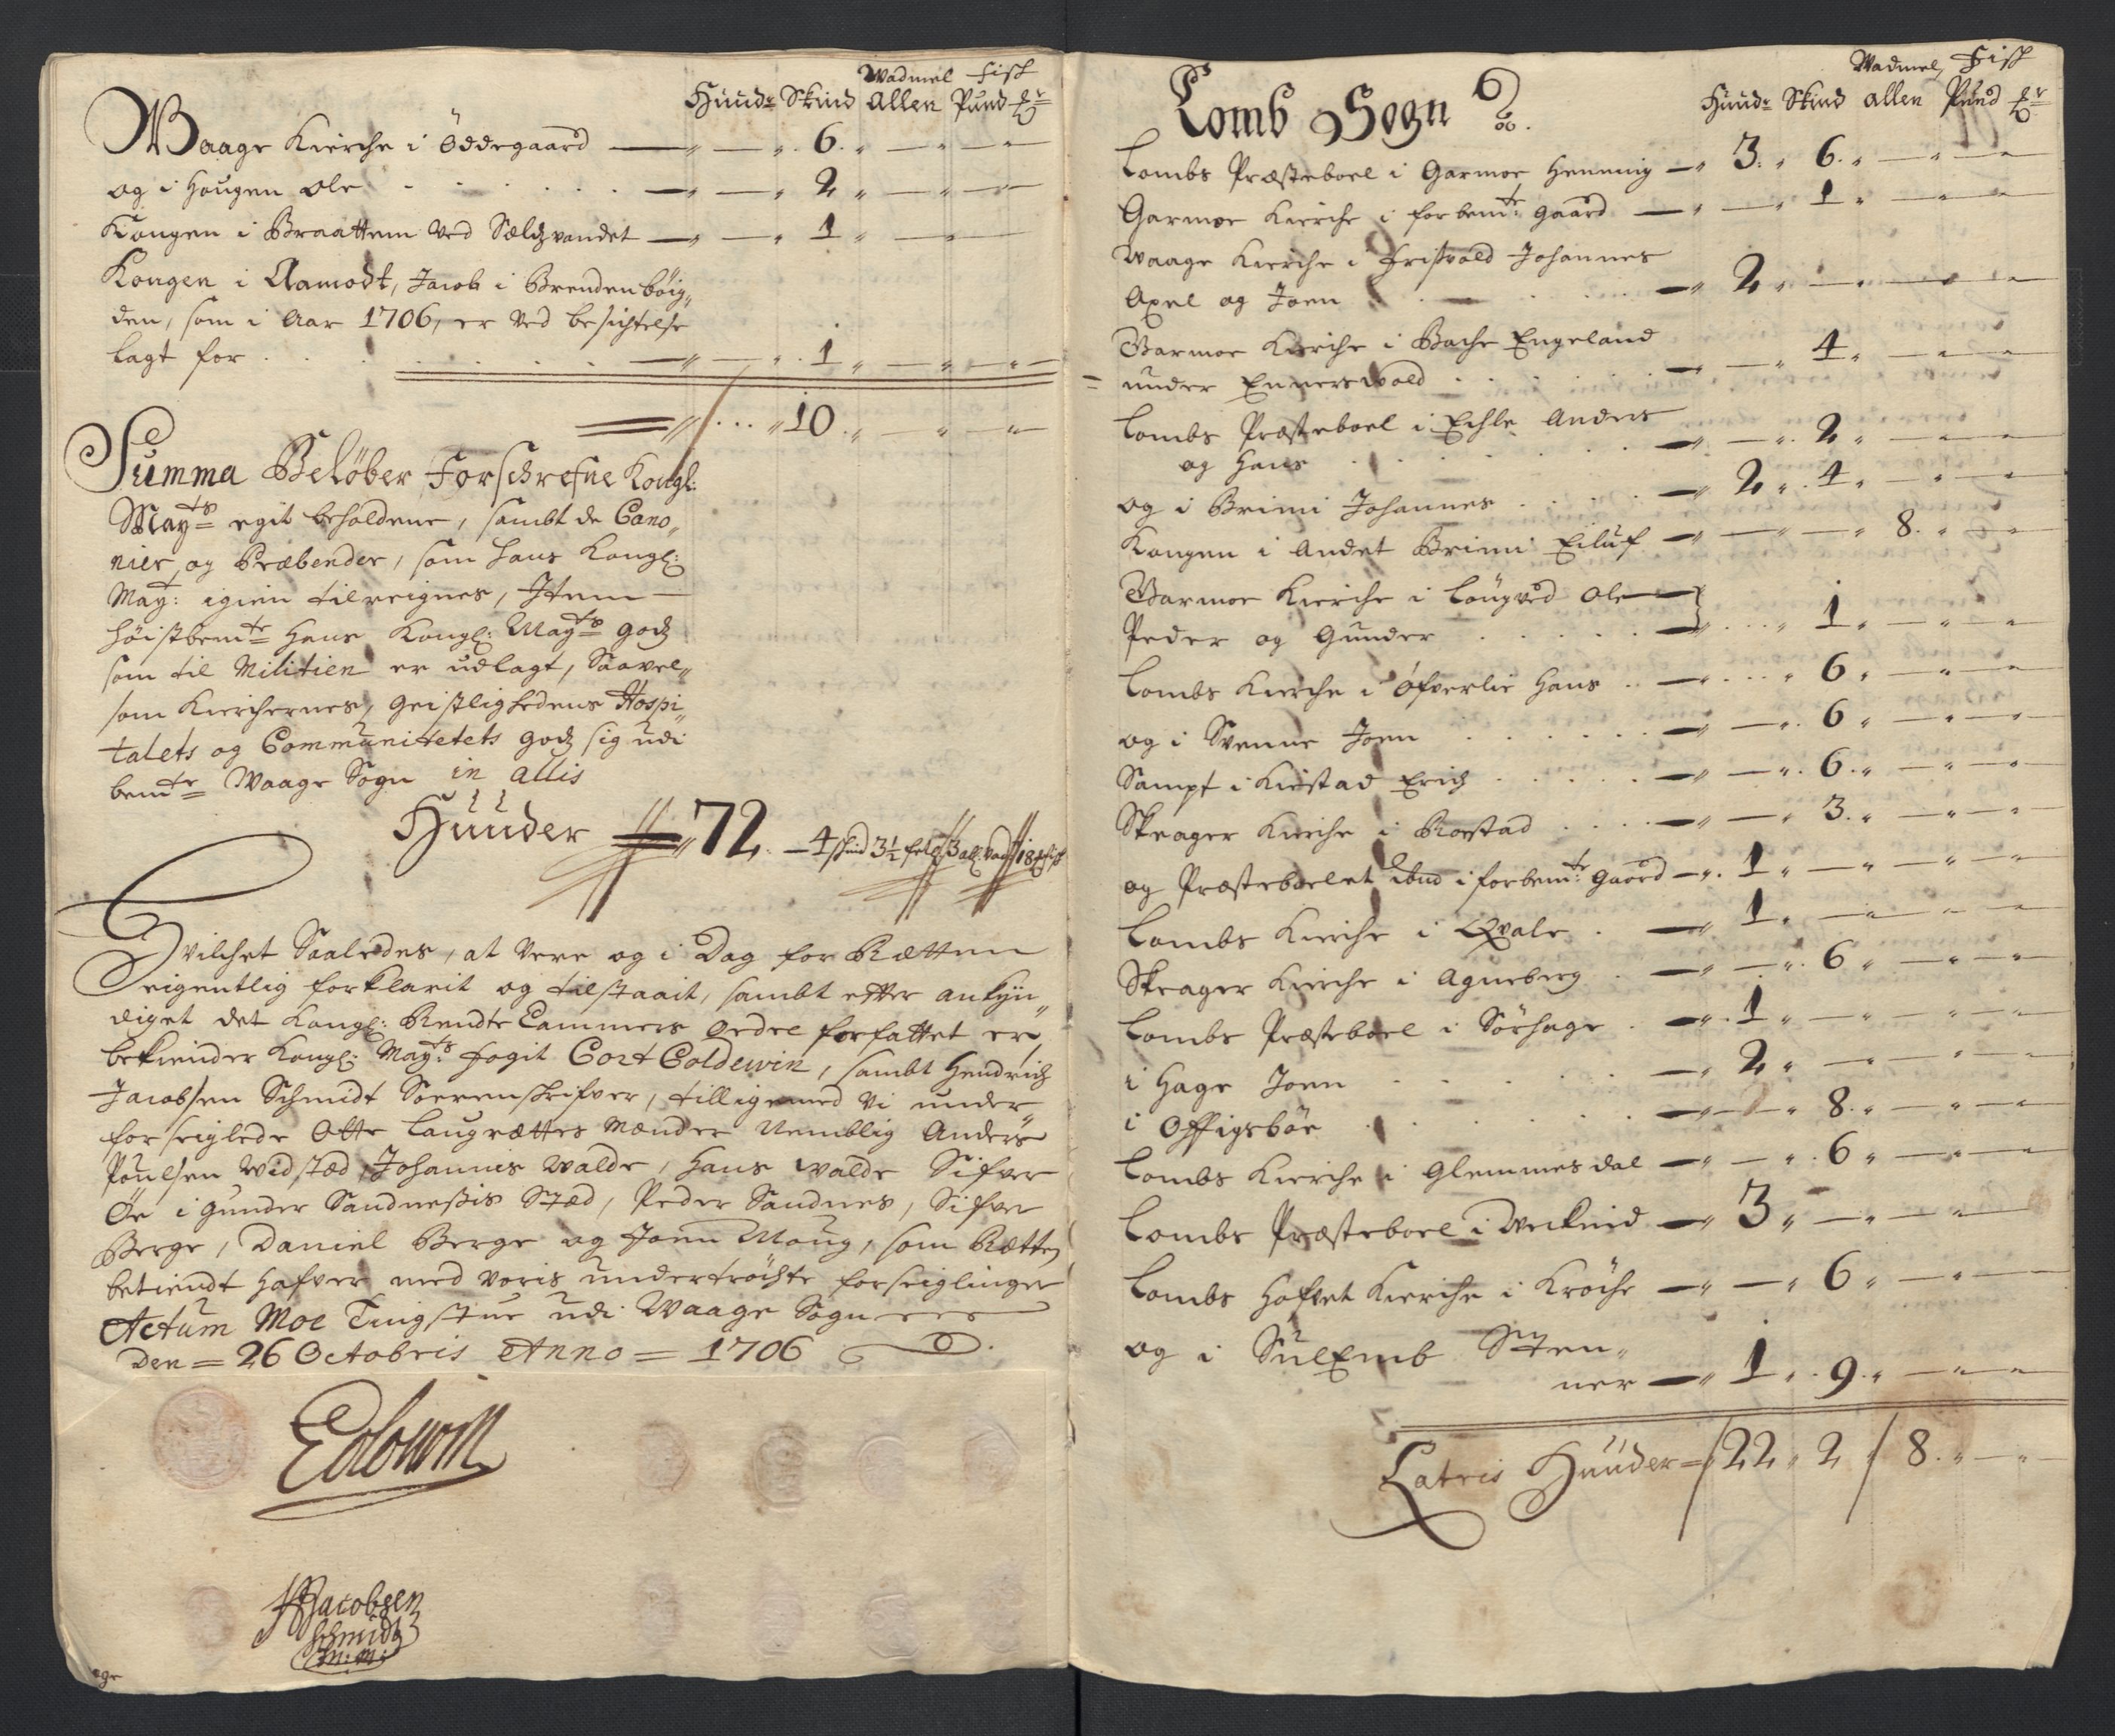 Wadmel Fisk
Huude Skind Allen Pund
Waage Kierche i Öddegaard — 6
og i Hougen Ole . . . 2
Kongen i Braattem Ved Sælsvandet — 1
Kongen i Aamodt, Jacob i Brendenböig„
den, som i Aar 1706, er Ved besichtelse
lagt for . . . 1
10
Summa Beløber Forschrefne Kongl:
Mayts egit beholdene, sambt de Cano„
nier og Præbender, som Hans Kongl:
May: igien tilreignes, Item
höistbemte Hans Kongl: Mayts godtz
som til Militien er udlagt, Saavel„
som Kierchernes, Geistlighedens Hospi„
talets og Communitetets godtz sig udi
bemte Waage Sogn in allis
Huuder 72 – 4 skind 3½ fel
Hvilchet Saaledes, at Vere og i Dag for Rætten
eigentlig forklarit og tilstaait, sambt efter ankyn„
diget det Kongl: Rendte Cammers Ordre forfattet er,
bekiender Kongl: Mayts fogit Cort Coldewin, sambt Hendrich
Jacobsen Schmidt Sorenskrifver, tilligemed Vi under„
forseiglede Otte Laugrættes Mænder Nemblig Anders
Poulsen Widsted, Johannis Walde, Hans Walde Sifver
Øe i gunder Sandnessis Sted, Peder Sandnes, Sifver
Berge, Daniel Berge og Joen Moug, som Rætten
betiendt Hafver med voris undertröchte forseiglinger
Actum Moe Tingstue udi Waage Sogn
Den 26 Octobris Anno 1706
Coldewin
HJacobsen
Schmidt
m: m:
Lomb Sogn
Wadmel Fisk
Huude Skind allen Pund
Lombs Præsteboel i Garmoe Henning — 3 . 6
Garmoe Kierche i forbemte gaard — 1
Waage Kierche i Fristvold Johannes
Axel og Joen . 2
Garmoe Kierche i Bache Engeland
under Ennersvold . . 4
Lombs Præsteboel i Echle Anders
og Hans . . 2
og i Brimi Johannes . . 2 . 4
Kongen i Andet Brimi Eiluf — 8
Garmoe Kierche i Lougved Ole
Peder og Gunder . . 1
Lombs Kierche i Öfverlie Hans . . 6
og i Svenne Joen . . 6
Sampt i Kiestad Erich . . 6
Skeager Kierche i Roestad . . 3
og Præsteboelet ibnd i forbemte Gaard — 1
Lombs Kierche i Qvale . 1
Skeager Kierche i Agneberg . 6
Lombs Præsteboel i Sörhage . 1
i Hage Joen . . 2
i Offigsböe . . 8
Lombs Kierche i Glemmesdal — 6
Lombs Præsteboel i — 3
Lombs Hofvet Kierche i Kröche — 6
og i Sulemb Sten„
ner — 1 . 9
Latris Huuder 22 . 2 / 8